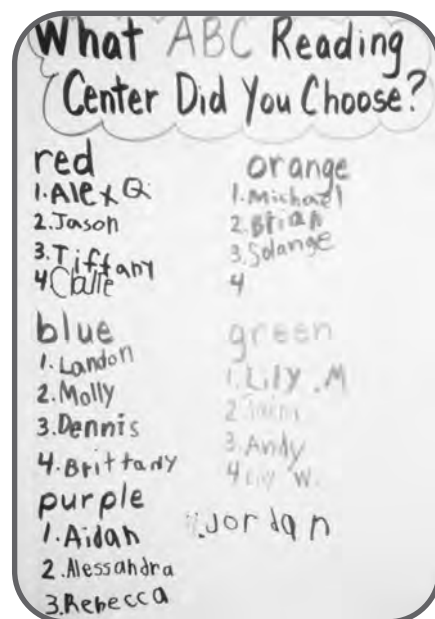 What ABC Reading
Center Did You Choose?
red
1. Alex Q.
2. Jason
3. Tiffany
4
blue
1. Landon
2. Molly
3. Dennis
4. Brittany
purple
1. Aidan
2. Alessandra
3. Rebecca
orange
1. Michael
2. Brian
3. Solange
4
green
1. Lily .M
2
3. Andy
4 Lily W.
Jordan